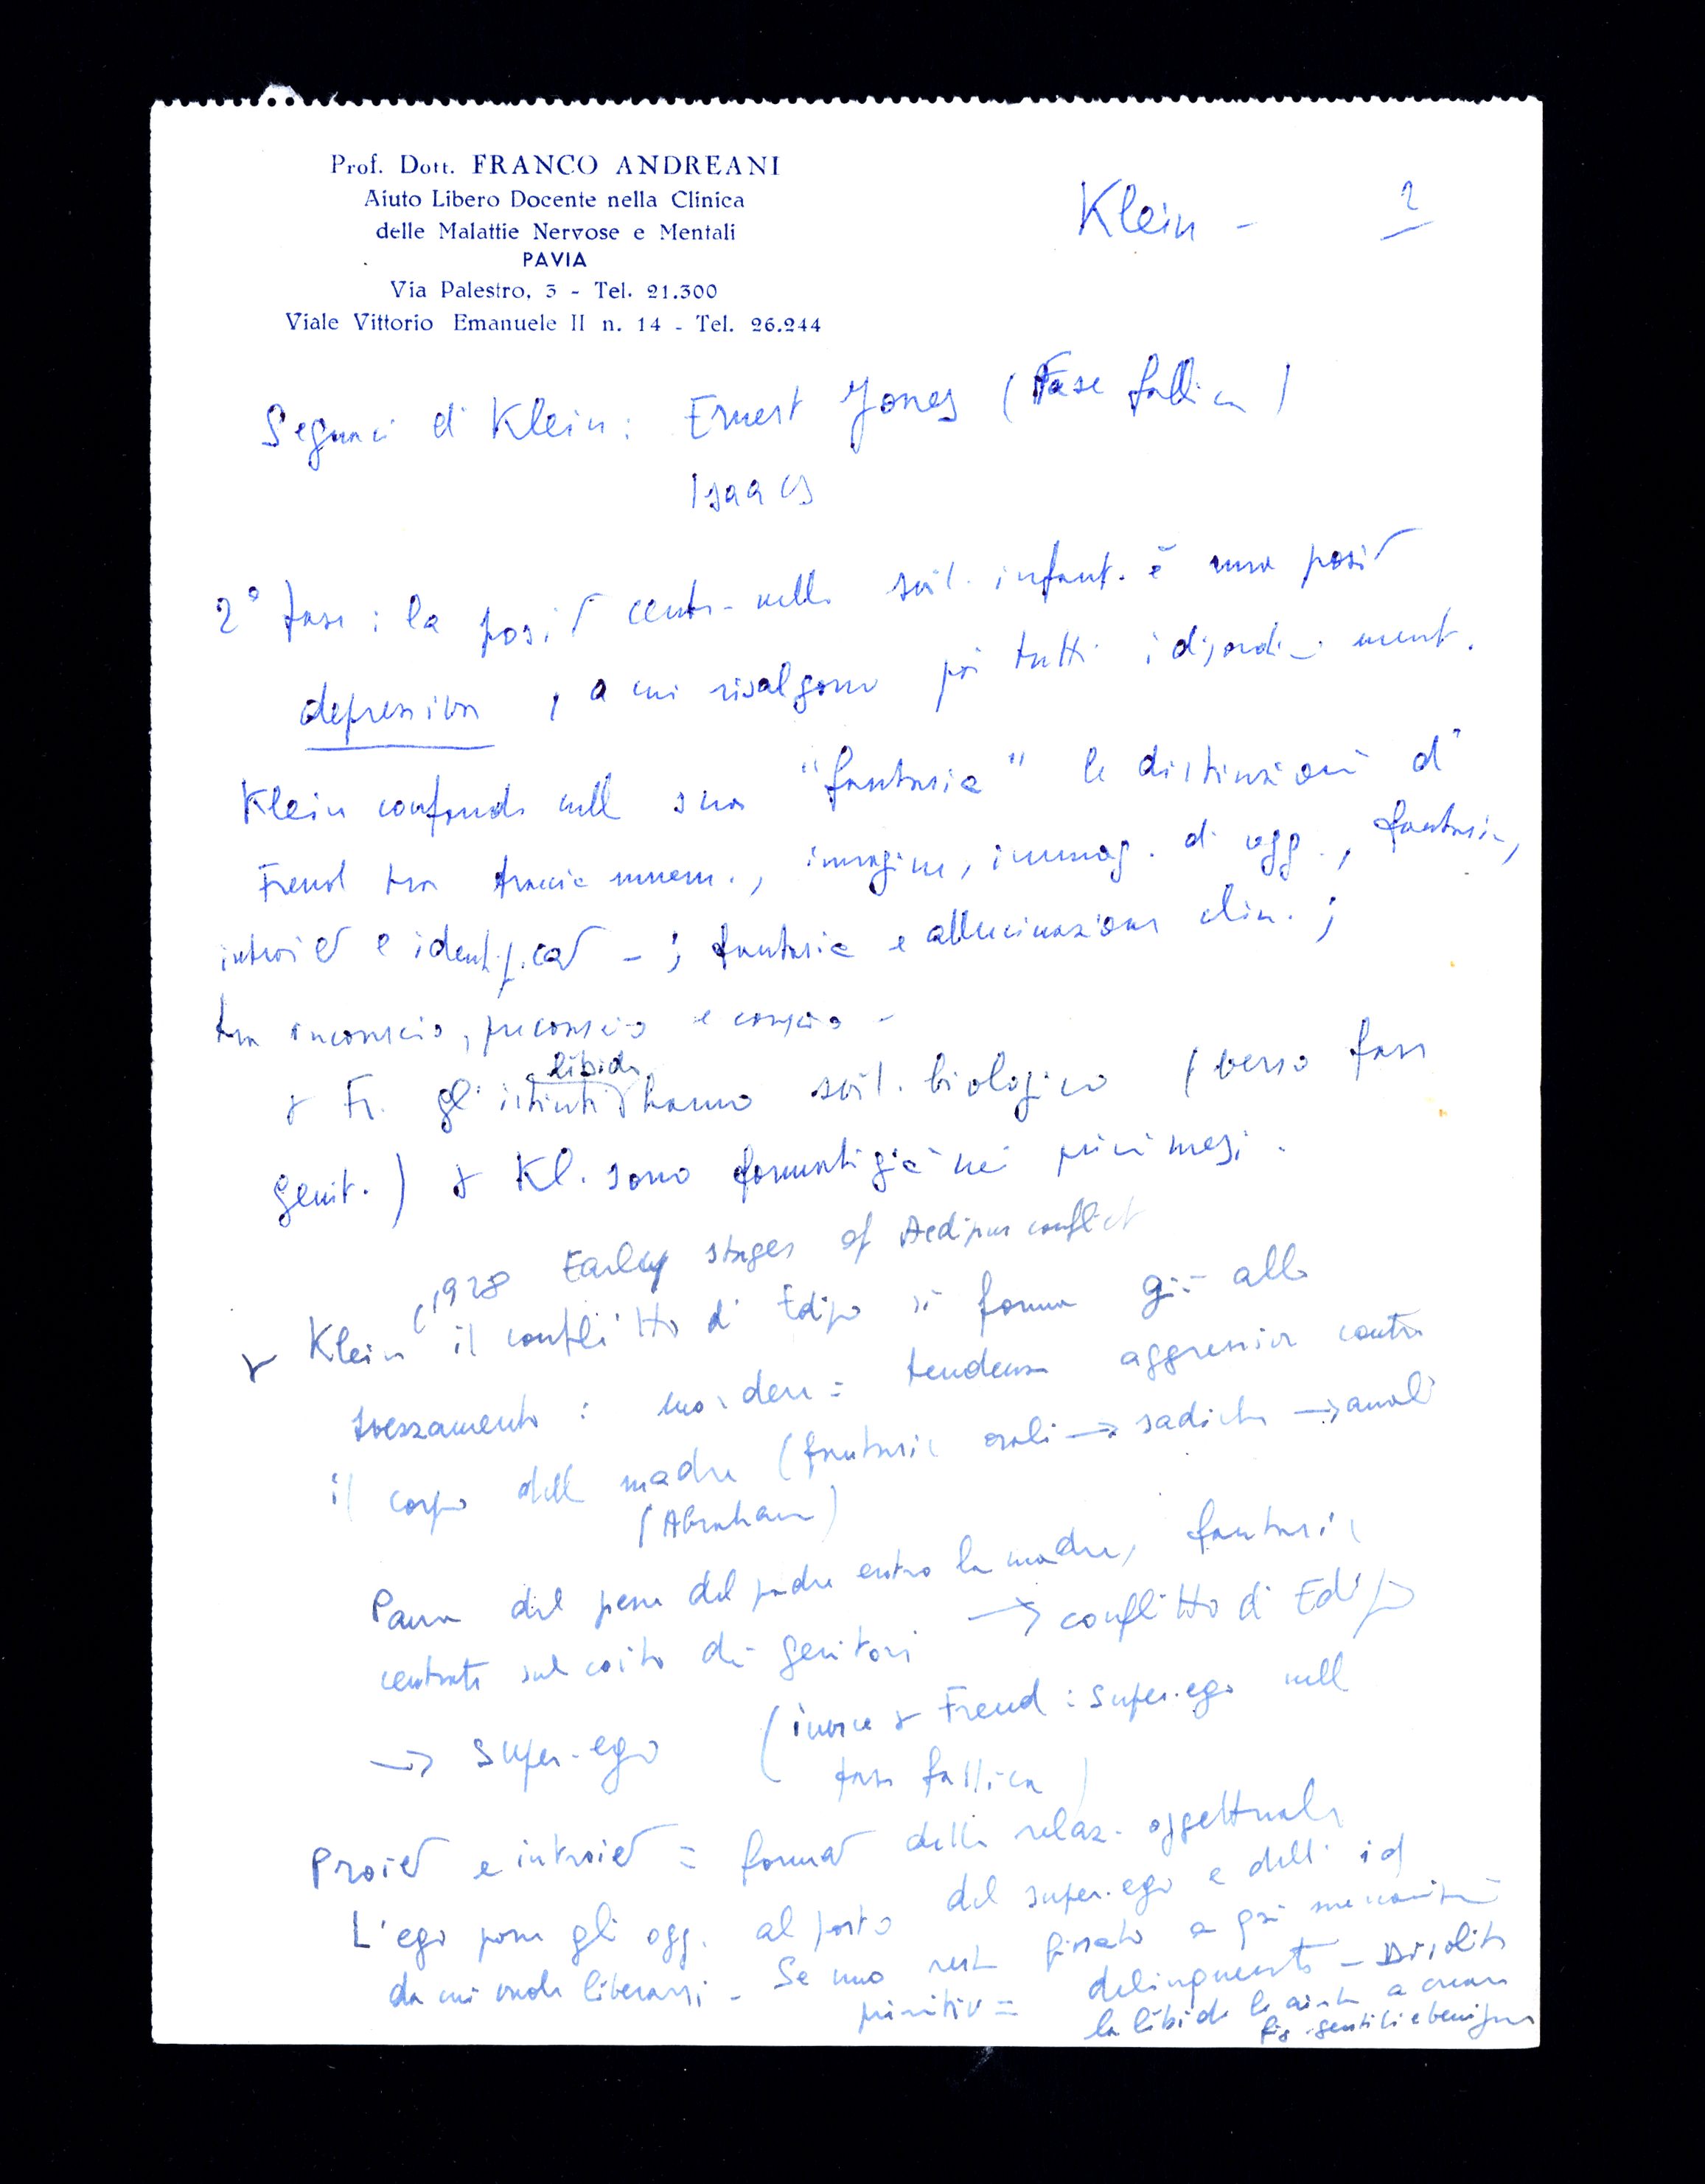 Prof. Dott. FRANCO ANDREANI
Aiuto Libero Docente nella Clinica
delle Malattie Nervose e Mentali
PAVIA
Via Palestro, 3 - Tel. 21.300
Viale Vittorio Emanuele II n. 14 - Tel. 26.244
Klein - 2
Seguaci di Klein: Ernest Jones (Fase fallica)
Isaacs
2° fase: la centr. nello svil. infant. è una
depressiva, a cui risalgono poi tutti i disordini ment.
Klein confonde nella sua "fantasia" le distinzioni di
Freud tra traccia mnem., imagine, immag. di ogg., fantasia,
e - ; fantasia e allucinazione ;
tra inconscio, preconscio e conscio -
libido
Fr. gli istinti hanno svil. biologico (verso fase
genit.) Kl. sono formati già nei primi mesi.
(1928 Early stages of Aedipus conflict
Klein il conflitto di Edipo si forma già allo
svezzamento: mordere = tendenza aggressiva contro
il corpo della madre (fantasie orali → sadiche → anali
(Abraham)
Paura del pene del padre entro la madre, fantasie
centrate sul coito dei genitori → conflitto di Edipo
→ super-ego (invece Freud: super-ego nella
fase fallica)
e = delle relaz. oggettuale
L'ego pone gli ogg. al posto del super-ego e dell'id
da cui vuole liberarsi - Se uno resta fissato a
primitiv = delinquente - Di solito
la libido lo aiuta a creare
fig. gentili e benigne